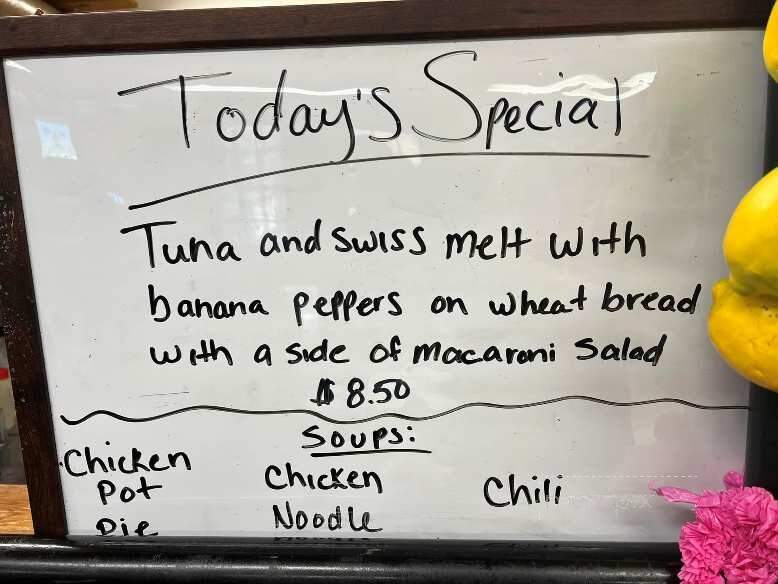 Today's Special
Tuna and swiss melt with
banana peppers on wheat bread
with a side of macaroni salad
$8.50
Soups:
Chicken
Pot
Pie
Chicken
Noodle
Chili